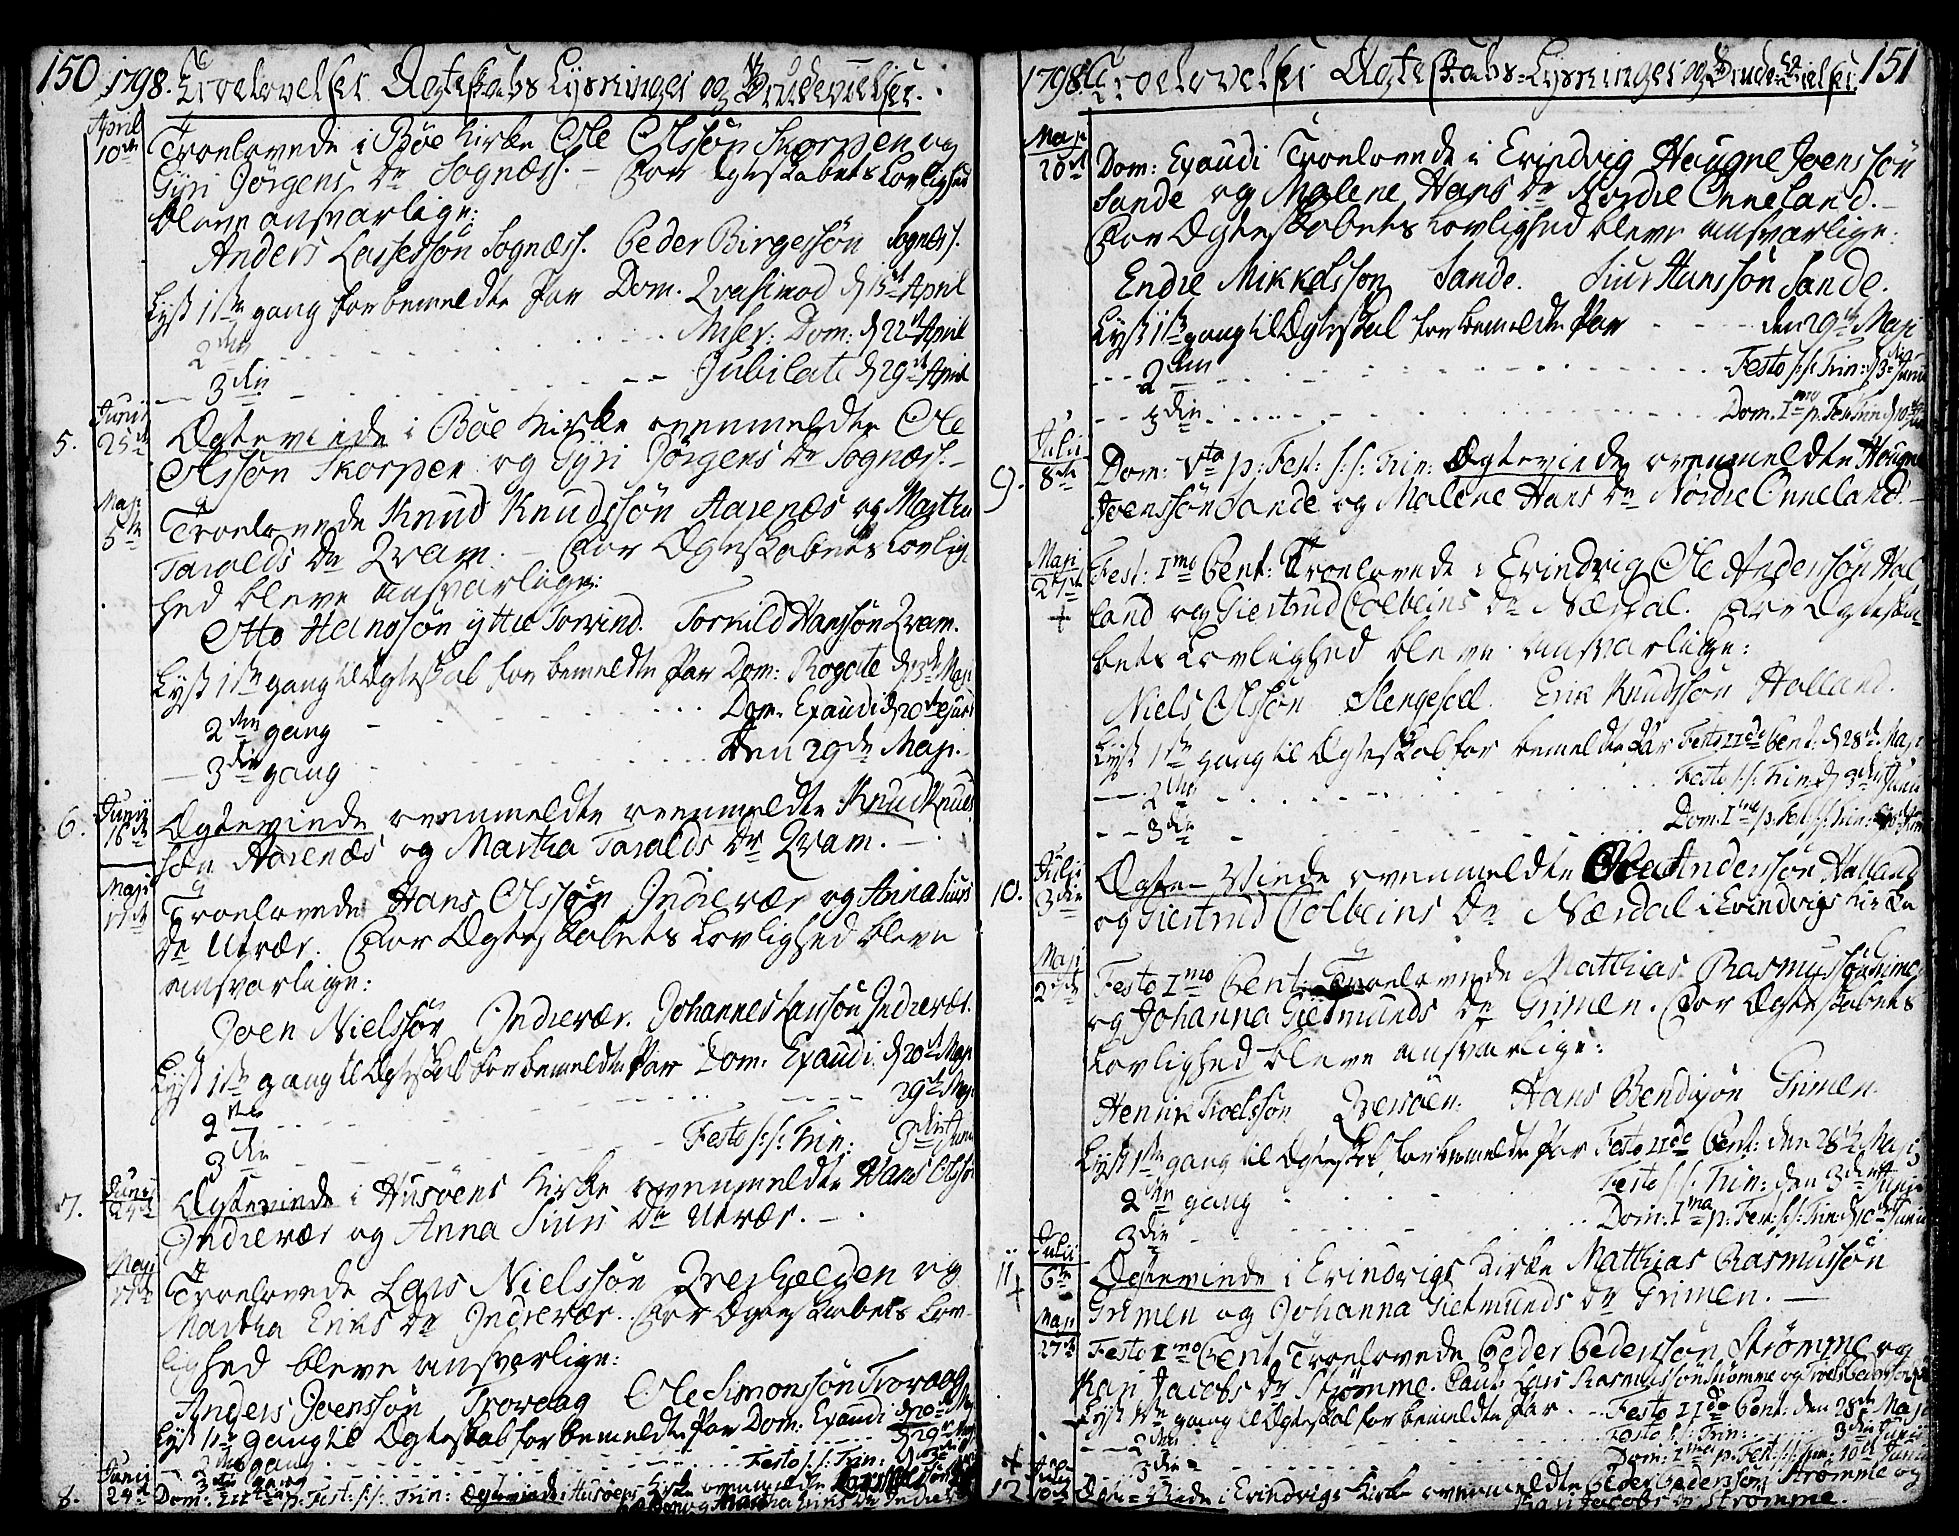 150 1798. Troelovelser Ægteskabs Lysninger og Brudevielser.
April
10de Troelovede i Böe Kirke Ole Olssön Skorpen og
Gÿri Jörgens Dr Sognæss. - For Ægteskabets Lovlighed
bleve ansvarlige:
Anders Lassessön Sognæss. Peder Birgessön Sognæss.
Lyst 1ste gang for bemeldte Par Dom. Qvasimod d 15de April
2den - - - Miser: Dom: d 22de April
3die - - - Jubilate d 29de April
Junii
5. 25de Ægteviede i Böe Kirke ovenmeldte Ole
Olssön Skorpen og Gÿri Jörgens Dr Sognæss. -
Maji
5te Troelovede Knud Knudssön Aarenæs og Martha
Taralds Dr Qvam. - For Ægteskabets Lovlig-
hed bleve ansvarlige:
Otto Hanssön ÿttre Torvind. Torkild Hanssön Qvam.
Lyst 1ste gang til Ægteskab for bemeldte Par Dom: Rogate d 13de Maji
2den gang - - - Dom. Exaudi d 20de
3die gang - - - Den 29de Maji.
Junii
6. 16de Ægteviede ovenmeldte Knud Knuds
sön Aarenæs og Martha Taralds Dr Qvam. -
Maji
17de Troelovede Hans Olssön Indrevær og Anna Siurs
Dr Utvær. For Ægteskabets Lovlighed bleve
ansvarlige:
Joen Nielssön Indrevær. Johannes Larssön Indrevær.
Lyst 1ste gang til Ægteskab for bemeldte Par Dom: Exaudi d 20de Maji
2den - - - 29de Maji
3die - - - Festo s: s: Trin: 3die Junii
Junii
7. 24de Ægteviede i Husöens Kirke ovenmeldte Hans Olssön
Indrevær og Anna Siurs Dr Utvær. -
Maji
17de Troelovede Lars Nielssön og
Martha Eriks Dr Indrevær. For Ægteskabets Lov-
lighed bleve ansvarlige:
Anders Joenssön Trovaag Ole Simonssön Trovaag
Lyst 1ste gang til Ægteskab for bemeldte Par Dom: Exaudi d 20de Maji
2den gang - - - d 29de Maji
3die gang - - - Festo s: s: Trin: d 3die
Junii
8. 24de Dom: p: Fest: s: s: Trin: Ægteviede i Husöens Kirke ovenmeldte
og Martha Eriks Dr Indrevær
1798. Troelovelser Ægteskabs-Lysninger og Brude-Vielser. 151
Maji
20de Dom: Exaudi Troelovede i Evindvig Haugne Joenssön
Sande og Malene Hans Dr Nordre Onneland. -
For Ægteskabets Lovlighed bleve ansvarlige:
Endre Mikkelssön Sande. Siur Hanssön Sande.
Lyst 1ste gang til Ægteskab for bemeldte Par - - den 29de Maji
- - 2den - - - Festo s: s: Trin: d 3die Junii
- - 3die - - - Dom. 1ma p. Fest Trin d 10de
Julii
9. 8de Dom: Vta p: Fest: s: s: Trin: Ægteviede ovenmeldte Haugne
Joenssön Sande og Malene Hans Dr Nordre Onneland. -
Maji
27de Fest: Imo Pent: Troelovede i Evindvig Ole Anderssön Hal
+ land og Giertrud Colbeins Dr Nærdal. For Ægteska-
bets Lovlighed bleve ansvarlige:
Niels Olssön Slengesoel. Erik Knudssön Halland.
Lyst 1ste gang til Ægteskab for bemeldte Par Festo IIdo Pent: d 28de Maji
- - 2den - - - Festo s: s: Trin d 3die Junii
- - 3die - - - Dom: Ima p: Fest s: s: Trin:
Julii
10. 3die Ægte-Viede ovenmeldte Ole Anderssön Halland
og Giertrud Colbeins Dr Nærdal i Evindvigs Kirke
Maji
27de Festo Imo Pent: Troelovede Matthias Rasmussön Grimen
og Johanna Gietmunds Dr Grimen. For Ægteskabets
Lovlighed bleve ansvarlige:
Henrik Troelssön Qversöen. Hans Bendixön Grimen.
Lyst 1ste gang til Ægteskab for bemeldte Par Festo IIdo Pent: den 28de Maji
2den gang - - - Festo s: s: Trin: den 3die Junii
3die - - - Dom: Ima p: Fest: s: s: Trin: d 10de Junii
Julii
11 6te Ægteviede i Evindvigs Kirke Matthias Rasmussön
+ Grimen og Johanna Gietmunds Dr Grimen. -
Maji
27de Festo Imo Pent Troelovede Peder Pederssön Strömme og
Kari Jacobs Dr Strömme. Caut: Lars Rasmussön Strömme og Troels Pederssön
Lyst 1ste gang til Ægteskab for bemeldte Par. - Festo IIdo Pent: den 28de Maji
- - 2den - - - Festo s: s: Trin: 3die Junii
+ - - 3die - - - Dom: Ima p. Fest: s: s: Trin: 10de Junii
Julii
12 Ægte-Viede i Evindvigs Kirke ovenmeldte Peder Pederssön Strömme og
Kari Jacobs Dr Strömme.